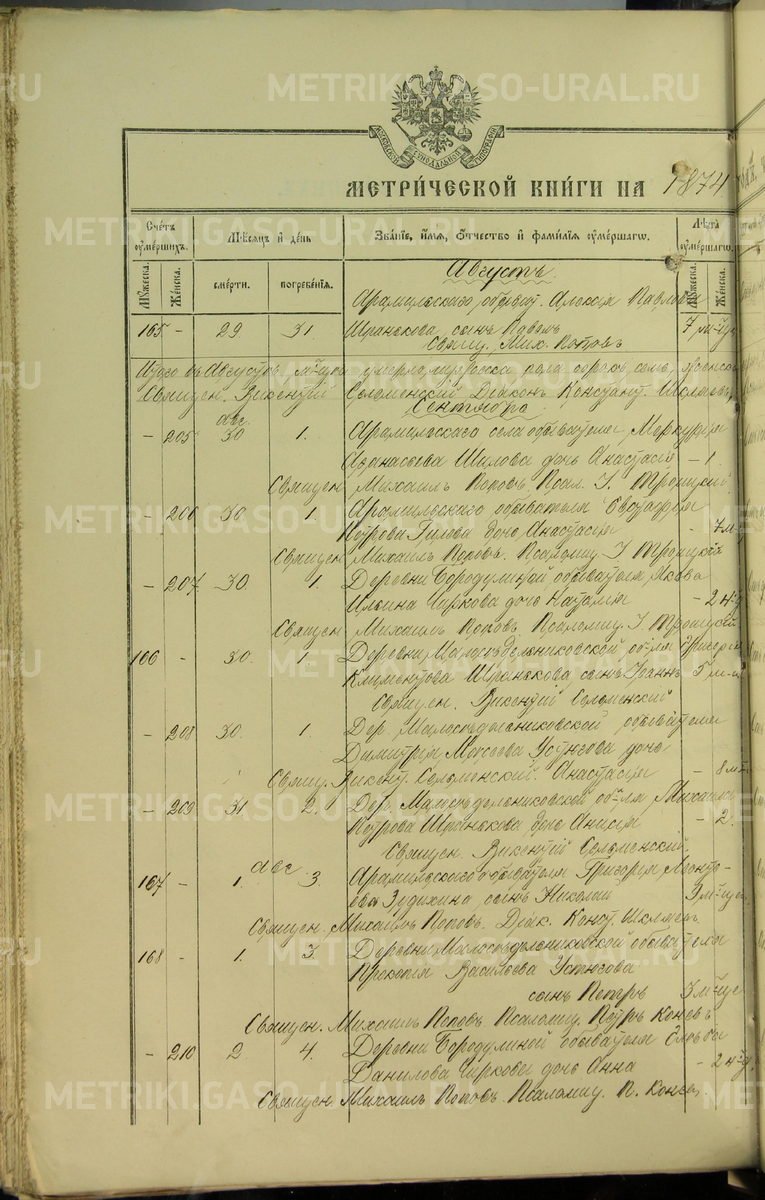 METRIKI.GASO-URAL.RU
МОСКОВСКОЙ СИНОДАЛЬНОЙ ТИПОГРАФІИ
МЕТРИ́ЧЕСКОЙ КНИ́ГИ НА 1874
Сче́тъ оумершихъ. Мѣсяцъ и день Зва́ніе, и́мя, ѻ҆́тчество и фамилія оумершагѡ. Лѣта оумершагѡ.
Мꙋжеска. Женска. смерти. погребенія. Мꙋжеска. Женска.
Августъ
Арамильскаго обыват. Алексѣя Павлова
165 - 29 31 сынъ Павелъ 7 м-ц
Свящ. Мих. Поповъ
Итого въ Августѣ м-цѣ умерло мужеска пола сорокъ семь, женска
Священ. Викентій Селеменскій Діаконъ Констант.
Сентябрь
авг.
- 205 30 1. Арамильскаго села обывателя Меркурія
Аѳанасьева Шилова дочь Анастасія - 1.
Священ. Михаилъ Поповъ Псал. І. Троицкій.
- 206 30. 1. Арамильскаго обывателя
Петрова дочь Анастасія - 7 м-
Священ. Михаилъ Поповъ. Псаломщ. І Троицкій
- 207 30. 1. Деревни Бородулиной обывателя Якова
Ильина Чиркова дочь Наталія - 2 н-д
Священ Михаилъ Поповъ. Псаломщ. І Троицкій
166 - 30. 1. Деревни Малосѣдельниковской об-ля Григорія
Климентова сынъ Іоаннъ 5 м-
Священ. Викентій Селеменскій
- 208 30. 1. Дер. Малосѣдельниковской обывателя
Димитрія Моисеева Устюгова дочь
Свящ. Викент. Селеменскій. Анастасія - 8 м-
- 209 31 2. Дер. Малосѣдельниковской об-ля Михаила
Петрова дочь Анисія - 2.
Священ. Викентій Селеменскій
авг
167 - 1. 3. Арамильскаго обывателя Григорія Леонть-
ева сынъ Николай 3 м-ц
Священ. Михаилъ Поповъ. Діак. Конст.
168 - 1. 3. Деревни Малосѣдельниковской обывателя
Прокопія Васильева Устюгова
сынъ Петръ 3 м-ц
Священ. Михаилъ Поповъ Псаломщ. Петръ Коневъ
- 210 2. 4. Деревни Бородулиной обывателя Глѣба
Данилова Чиркова дочь Анна - 2 н-д.
Священ. Михаилъ Поповъ. Псаломщ. П. Коневъ